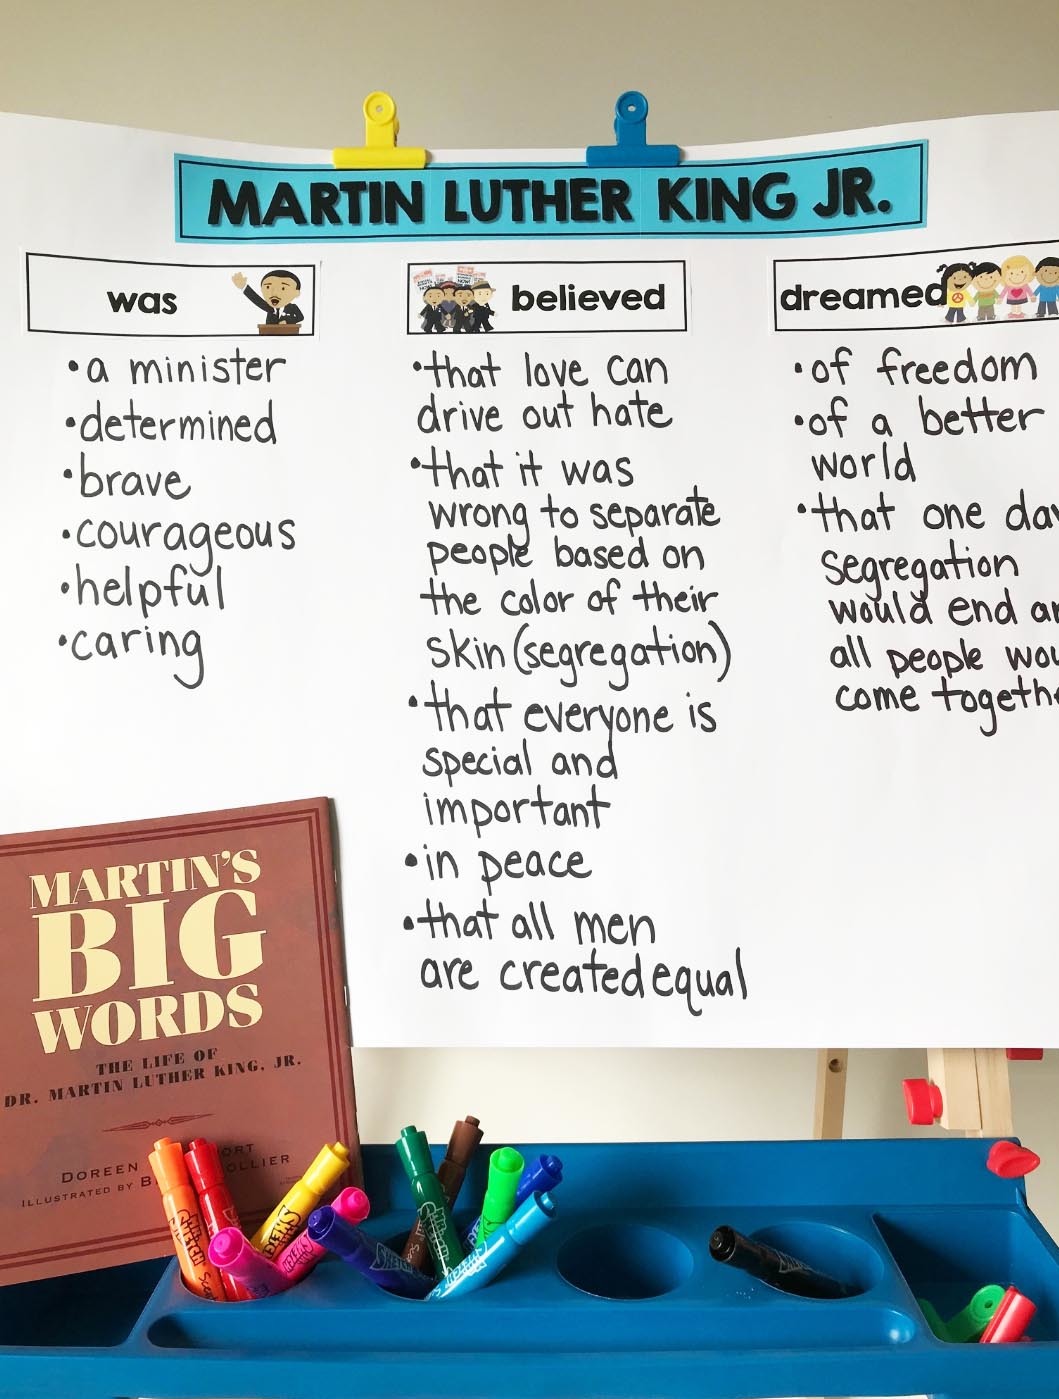 MARTIN LUTHER KING JR.
was
• a minister
• determined
• brave
• courageous
• helpful
• caring
believed
• that love can
drive out hate
• that it was
wrong to separate
people based on
the color of their
skin (segregation)
• that everyone is
special and
important
• in peace
• that all men
are created equal
dreamed
• of freedom
• of a better
world
• that one
segregation
would end
all people
come
MARTIN'S
BIG
WORDS
THE LIFE OF
DR. MARTIN LUTHER KING, JR.
DOREEN
ILLUSTRATED BY